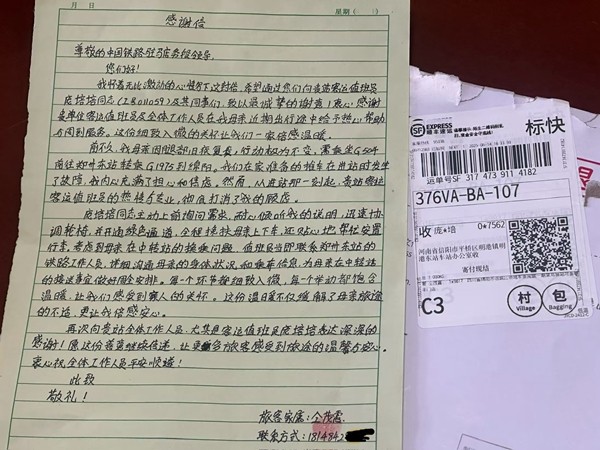 月 日 星期( )
感谢信
尊敬的中国铁路驻马店务段领导:
您们好!
我怀着无比激动的心情写下这封信,希望通过您们向贵站客运值班员
庞培培同志(28011059)及其同事们,致以最诚挚的谢意!衷心感谢
贵单位客运值班员及全体工作人员在我母亲近期出行途中给予热心帮助
与周到服务。这份细致入微的关怀让我们一家倍感温暖。
前几天,我母亲因腿部旧疾复发,行动极为不变,需乘坐G504
前往郑州东站转乘G1975到绵阳。我们在家准备的推车在进站时发生
了故障,我内心充满了担心和惧怕。然而,从进站那一刻起,贵站客
运值班员的热情与专业,彻底打消了我的顾虑。
庞培培同志主动上前询问需求,耐心倾听我的说明,迅速协
调轮椅,并开通绿色通道,全程搀扶母亲上下车,还贴心地帮忙安置
行李。考虑到母亲在中转站的换乘问题,值班员当即联系郑州东站的
铁路工作人员,详细沟通母亲的身体状况和乘车信息,为母亲在中转站
的接送事宜做好周全安排。每一个环节都细致入微,每一个举动都饱含
温暖,让我们感受到家人的关怀。这份温暖不仅缓解了母亲旅途
的不适,更让我倍感安心。
再次向贵站全体工作人员,尤其是客运值班员庞培培表达深深的
感谢!愿这份善意继续传递,让更多旅客感受到旅途的温馨与安心。
衷心祝全体工作人员平安顺遂!
此致
敬礼!
旅客家属:
联系方式:1814842
SF EXPRESS
顺丰速运
标快
运单号SF 317 473 911 4182
376VA-BA-107
收 庞*培 0*7562
河南省信阳市平桥区明港镇明
港东站车站办公室收
寄付现结
C3
村
Village
包
Bagging